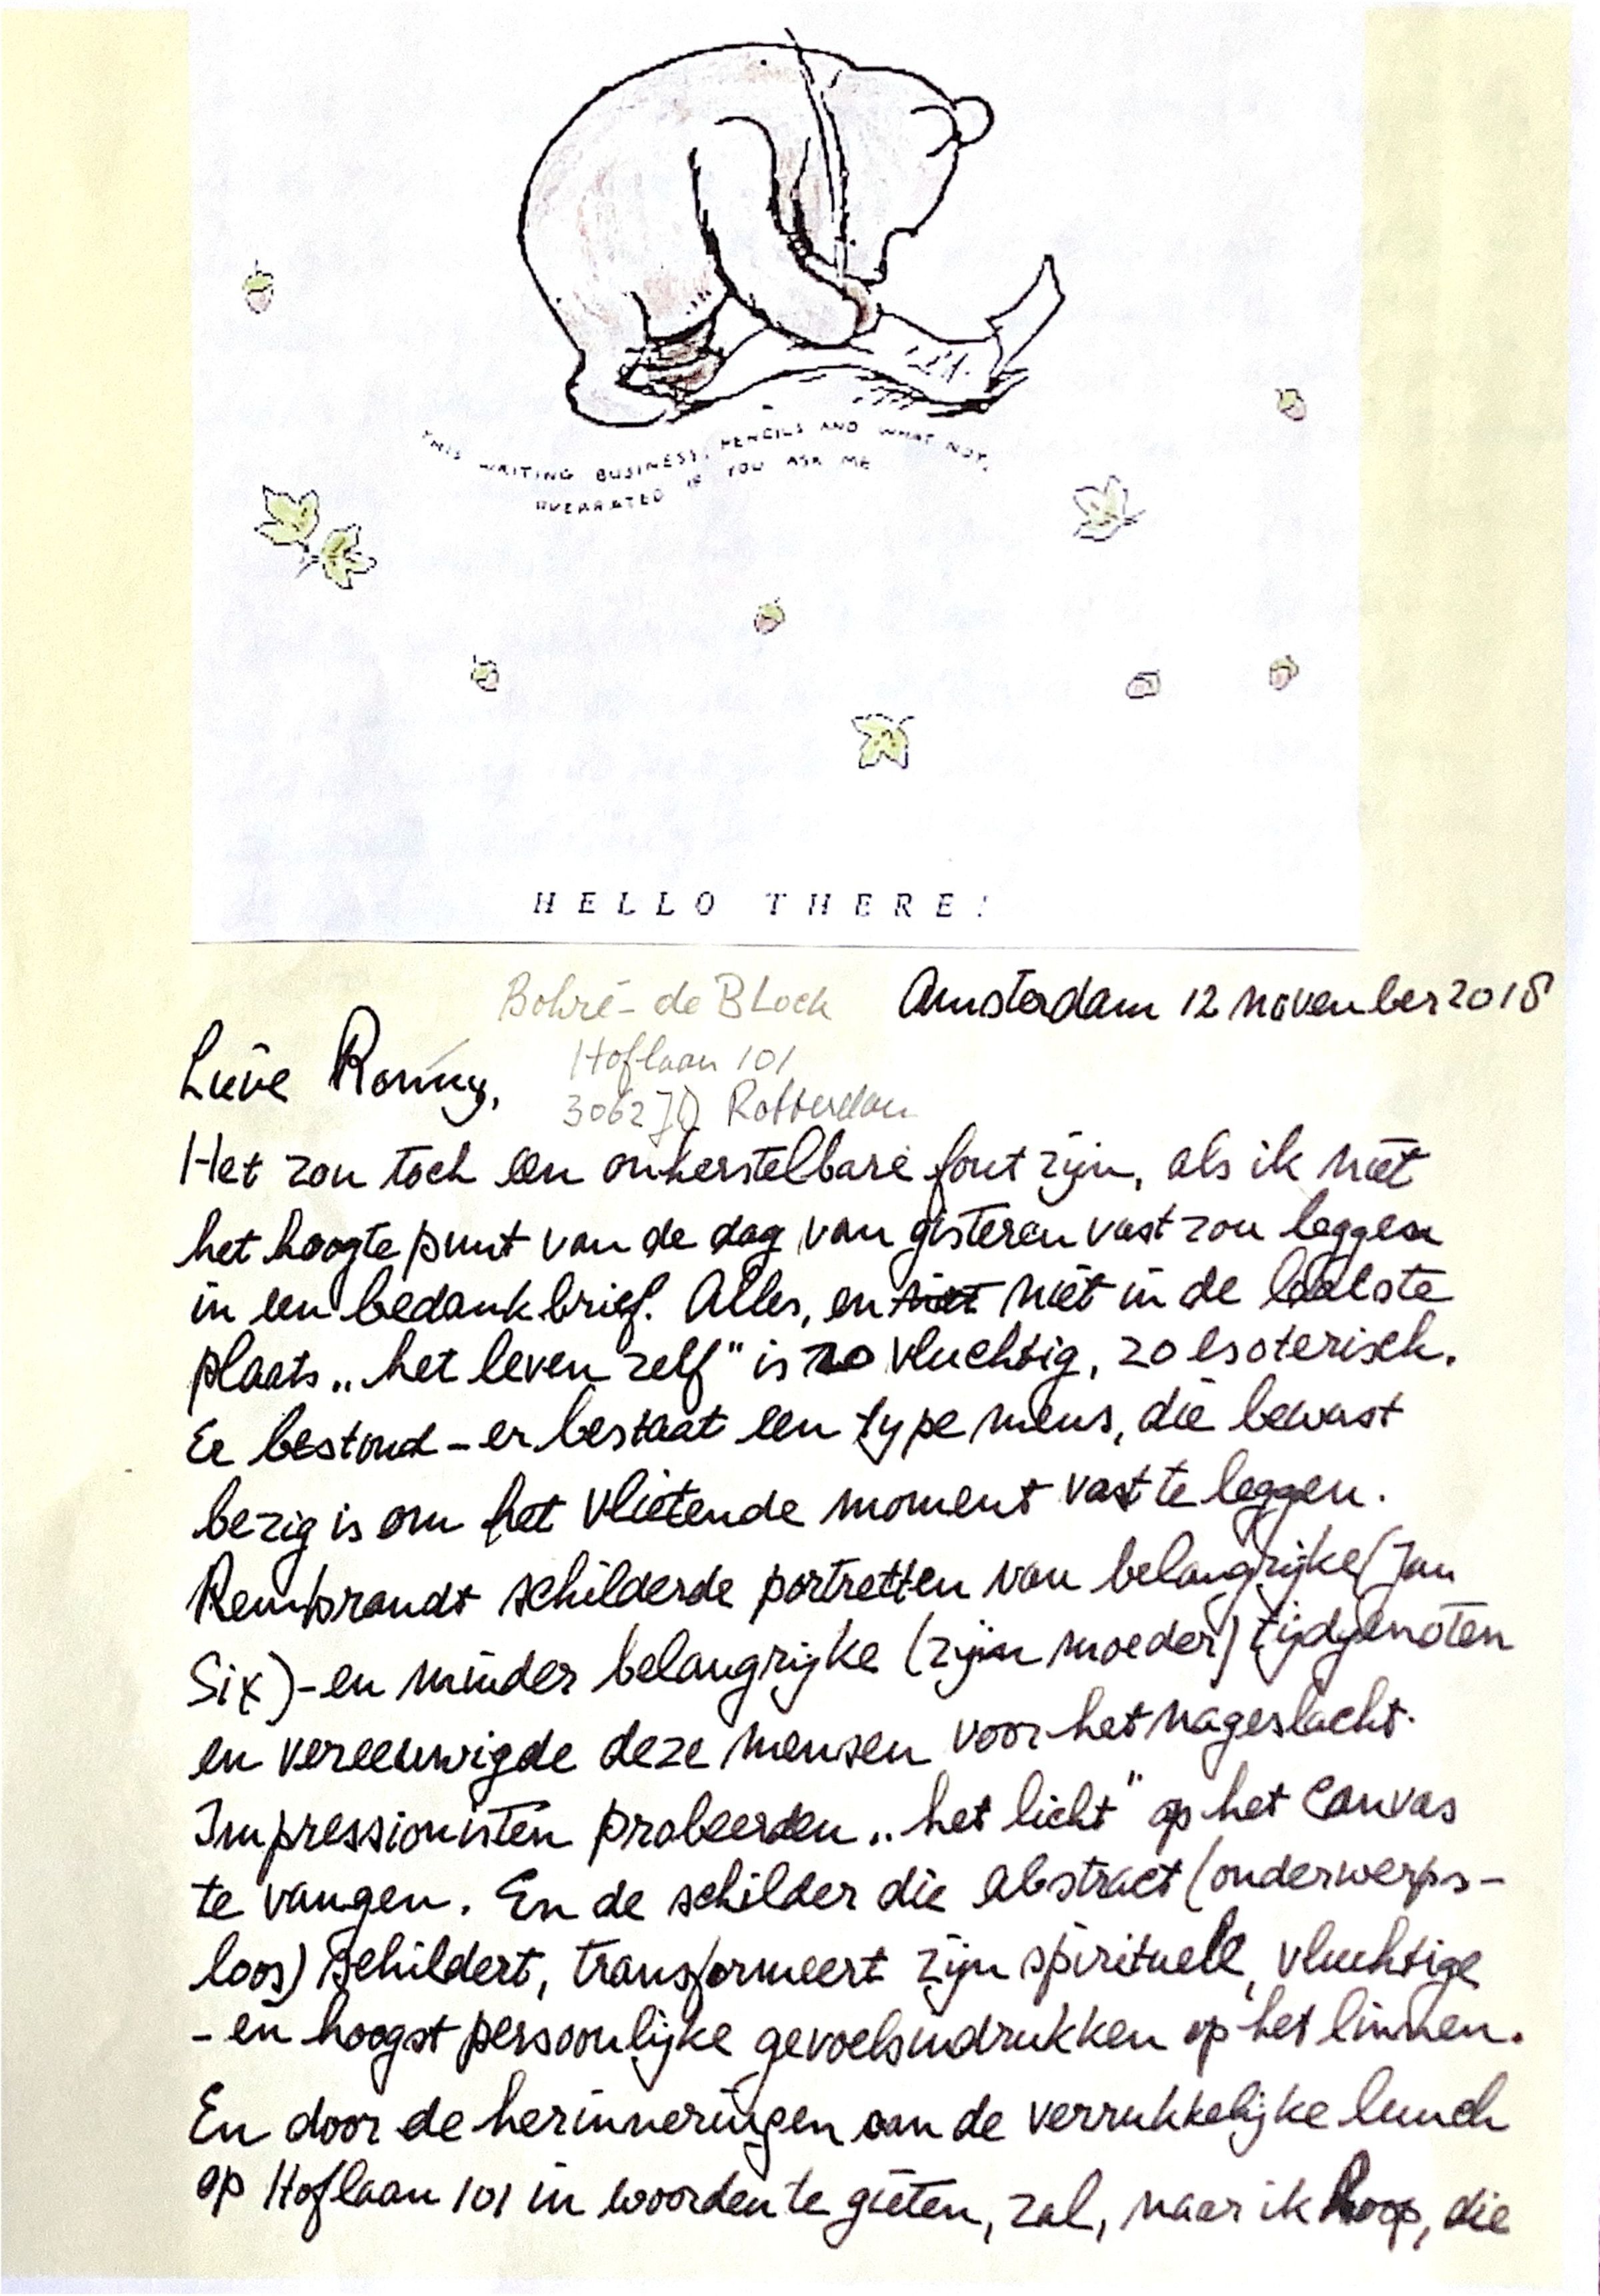 THIS WRITING BUSINESS, PENCILS AND WHAT NOT,
OVERRATED IF YOU ASK ME
HELLO THERE!
Bohré-de Block
Amsterdam 12 november 2018
Lieve Ronny,
Hoflaan 101
3062 JQ Rotterdam
Het zou toch een onherstelbare fout zijn, als ik niet
het hoogtepunt van de dag van gisteren vast zou leggen
in een bedankbrief. Alles, en niet niet in de laatste
plaats „het leven zelf" is zo vluchtig, zo esoterisch.
Er bestond - er bestaat een type mens, die bewust
bezig is om het vlietende moment vast te leggen.
Rembrandt schilderde portretten van belangrijke (Jan
Six) - en minder belangrijke (zijn moeder) tijdgenoten
en vereeuwigde deze mensen voor het nageslacht.
Impressionisten probeerden „het licht" op het Canvas
te vangen. En de schilder die abstract (onderwerps-
loos) schildert, transformeert zijn spirituele, vluchtige
- en hoogst persoonlijke gevoelsindrukken op het linnen.
En door de herinneringen aan de verrukkelijke lunch
op Hoflaan 101 in woorden te gieten, zal, naar ik hoop, die